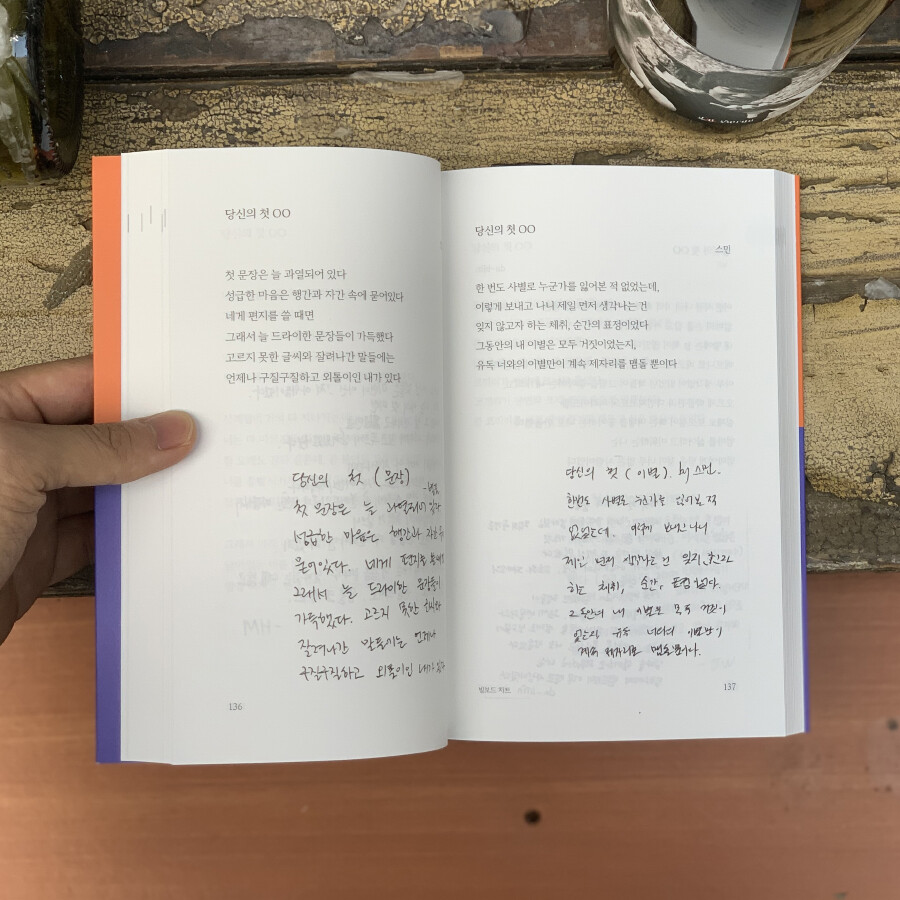 당신의 첫 OO
첫 문장은 늘 과열되어 있다
성급한 마음은 행간과 자간 속에 묻어있다
네게 편지를 쓸 때면
그래서 늘 드라이한 문장들이 가득했다
고르지 못한 글씨와 잘려나간 말들에는
언제나 구질구질하고 외톨이인 내가 있다
당신의 첫 (문장)
첫 문장은 늘 과열되어 있다
성급한 마음은 행간과 자간
묻어있다. 네게 편지를
그래서 늘 드라이한 문장들이
가득했다. 고르지 못한 글씨와
잘려나간 말들에는 언제나
구질구질하고 외톨이인 내가
136
당신의 첫 OO
스민
한 번도 사별로 누군가를 잃어본 적 없었는데,
이렇게 보내고 나니 제일 먼저 생각나는 건
잊지 않고자 하는 체취, 순간의 표정이었다
그동안의 내 이별은 모두 거짓이었는지,
유독 너와의 이별만이 계속 제자리를 맴돌 뿐이다
당신의 첫 (이별). by 스민.
한번도 사별로 누군가를 잃어본 적
없었는데. 이렇게 보내고 나니
제일 먼저 생각나는 건 잊지
하는 체취, 순간,
그동안의 내 이별은 모두 거짓이
유독 너와의 이별만이
계속 제자리를
빌보드 차트
137